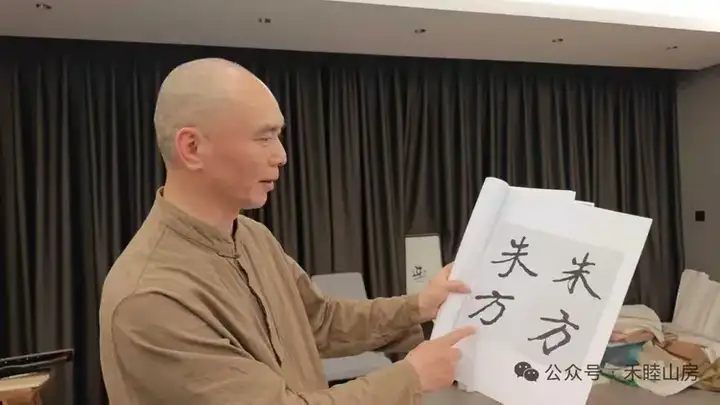 朱方
朱方
公众号·禾睦山房